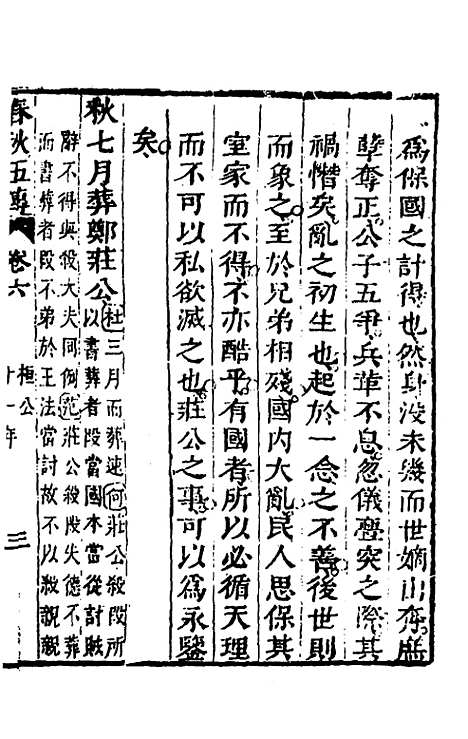 爲保國之計得也然身沒未幾而世嫡出奔庶
孽奪正公子五爭兵革不息忽儀亹突之際其
禍憯矣亂之初生也起於一念之不善後世則
而象之至於兄弟相殘國內大亂民人思保其
室家而不得不亦酷乎有國者所以必循天理
而不可以私欲滅之也莊公之事可以爲永鑒
矣
秋七月葬鄭莊公杜三月而葬速何莊公殺段所
以書葬者段當國本當從討賊
辭不得與殺大夫同例范莊公殺段失德不葬
而書葬者段不弟於王法當討故不以殺親親
春秋五傳 卷六 桓公 十一年 三